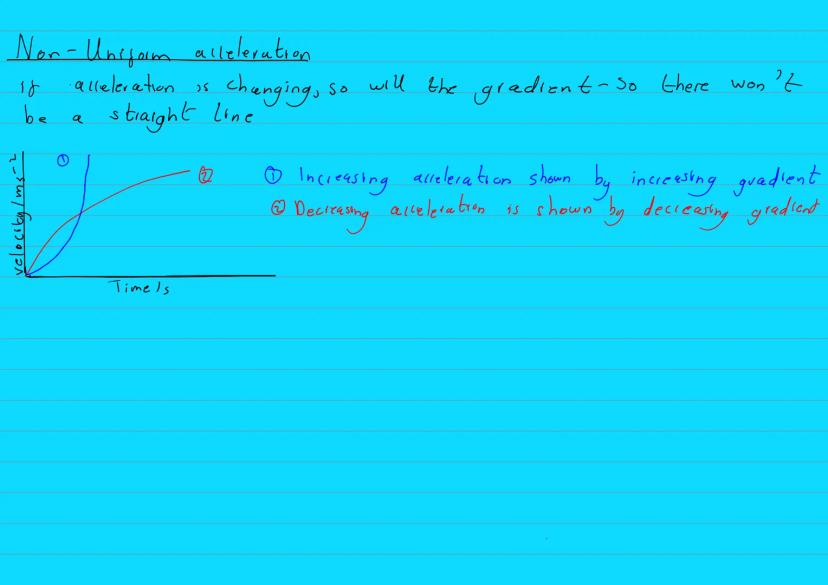 Non-Uniform acceleration
if acceleration is changing, so will the gradient - so there won't
be a straight line
velocity/ms⁻²
①
②
Time/s
① Increasing acceleration shown by increasing gradient
② Decreasing acceleration is shown by decreasing gradient